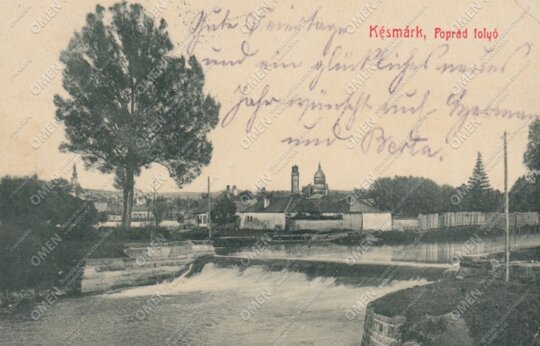 Késmárk, Poprád folyó
Gute Feiertage
und ein glückliches neues
Jahr wünscht euch Herman
und Berta.
OMEN